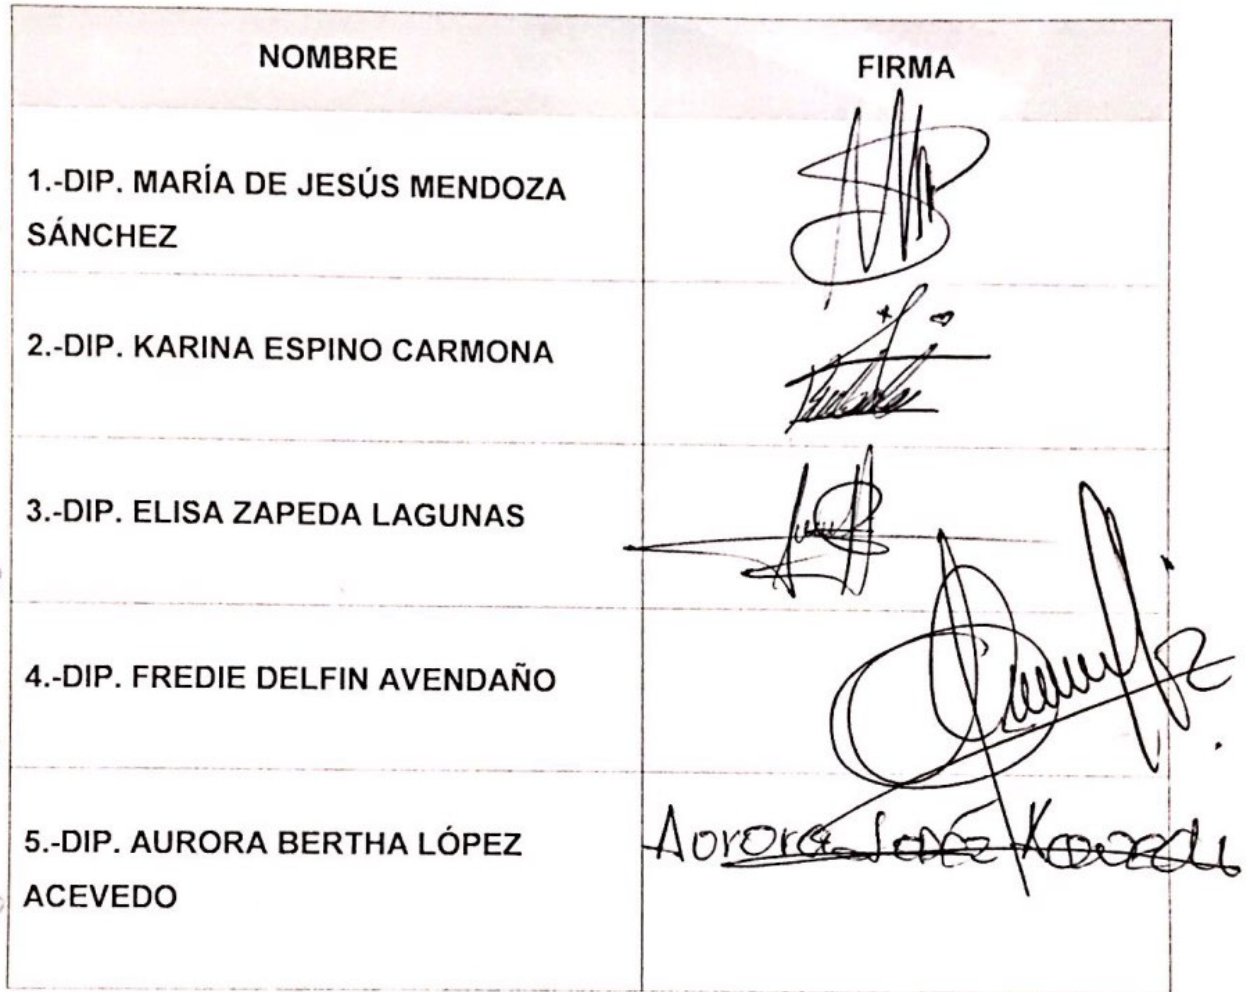 NOMBRE
FIRMA
1.-DIP. MARÍA DE JESÚS MENDOZA
SÁNCHEZ
2.-DIP. KARINA ESPINO CARMONA
3.-DIP. ELISA ZAPEDA LAGUNAS
4.-DIP. FREDIE DELFIN AVENDAÑO
5.-DIP. AURORA BERTHA LÓPEZ
ACEVEDO
Aurora López